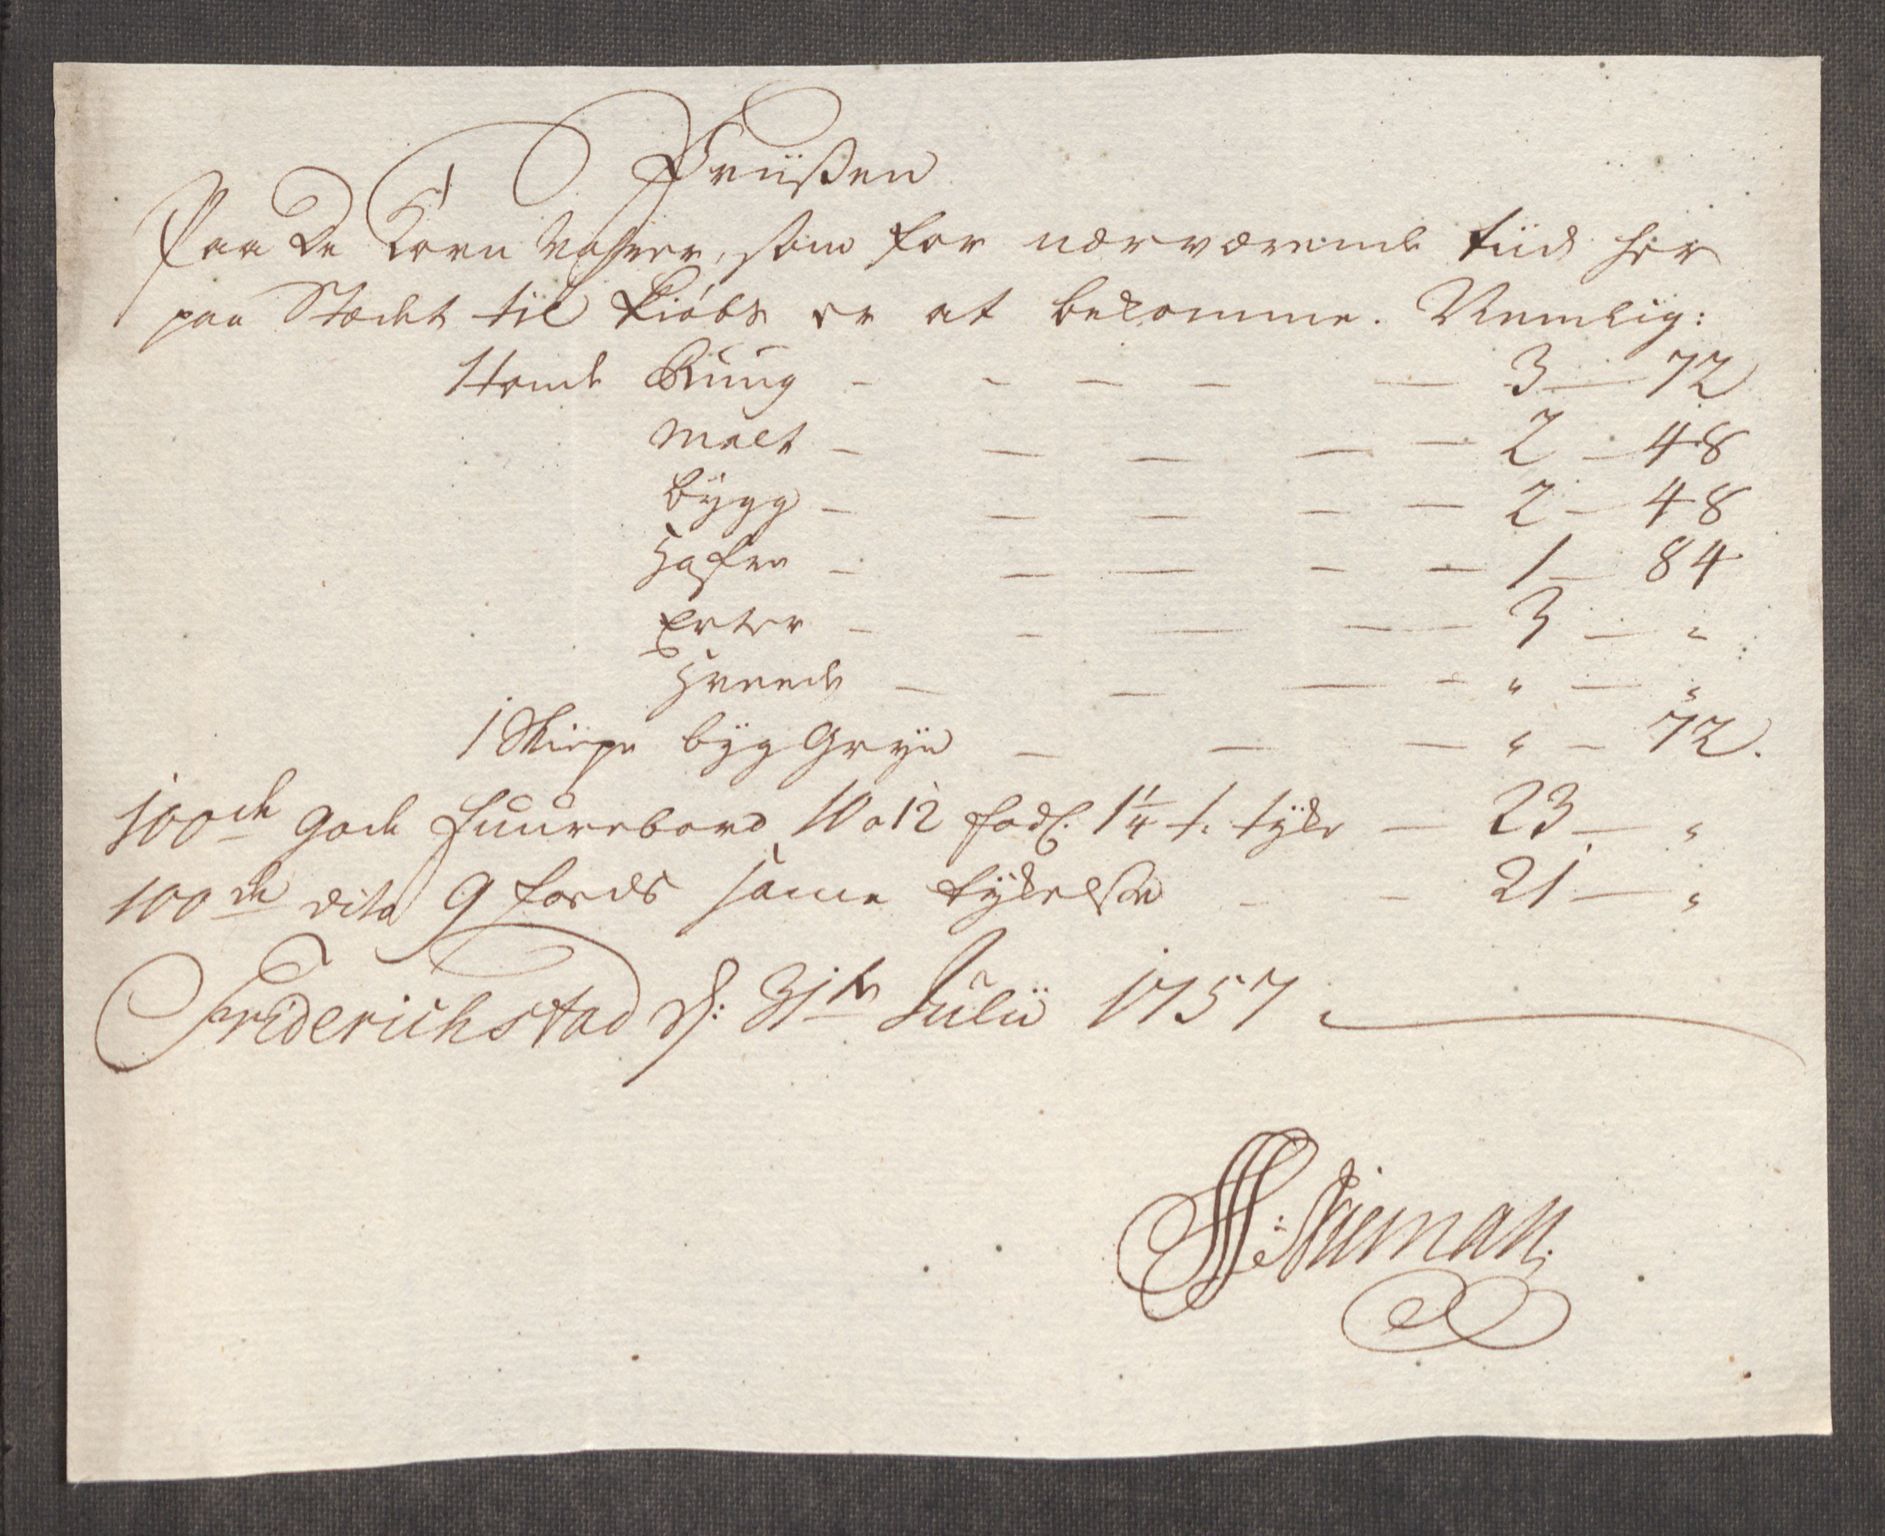 Priisen
Paa De Korn Vahrer, som for nærværende tiid her
paa Stædet til Kiøbs er at bekomme. Nemlig:
1 Tønde Rúug - - - - - 3 - 72
Malt - - - - - 2 - 48
bÿgg - - - - - 2 - 48
Hafre - - - - - 1 - 84
Erter - - - - - 3 - "
Hveede - - - - " - "
1 Skiepe bÿg Grÿn - - - " - 72.
100de gode Fuurebord 10 a 12 fod 1 1/4 t. tÿke - 23 - "
100de dito 9 fods same tÿkelse - - 21 - "
Friderichstad d: 31te Julii 1757